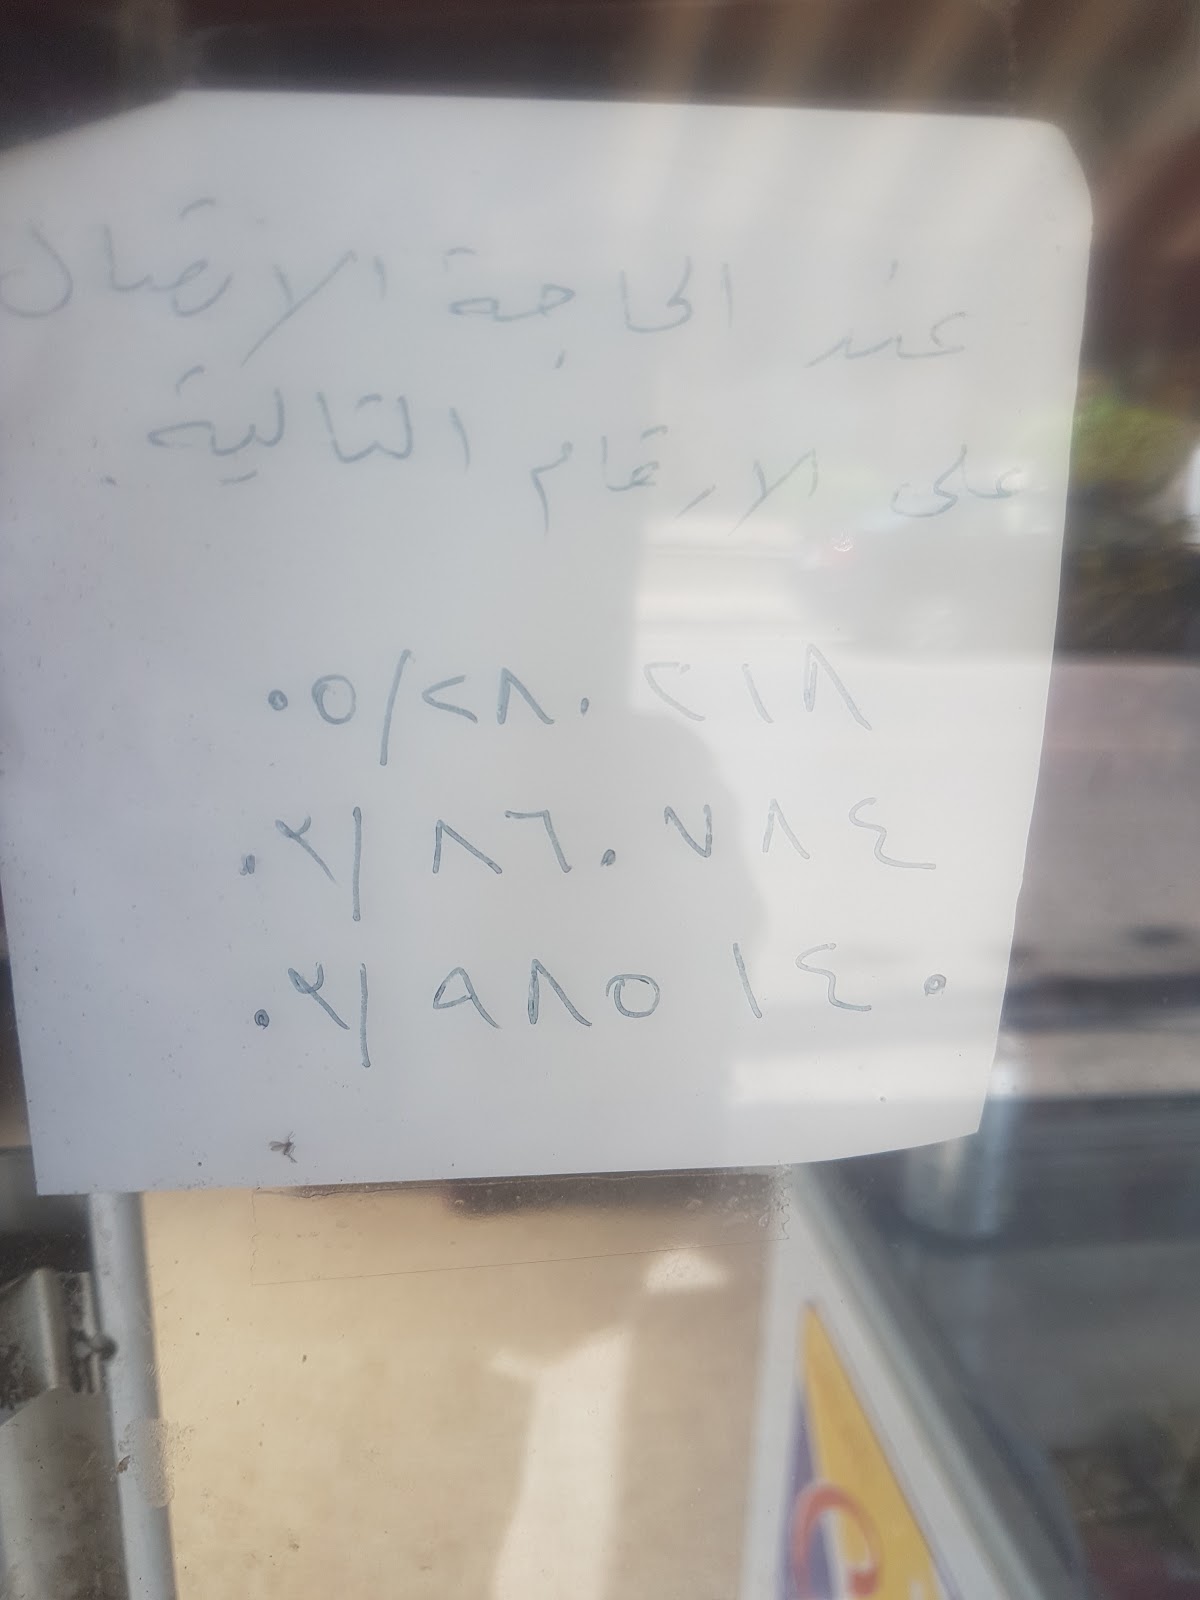 عند الحاجة الاتصال
على الارقام التالية.
٠٥/٢٨٠٢١٨
٠٣/٨٦٠٧٨٤
٠٣/٩٨٥١٤٠